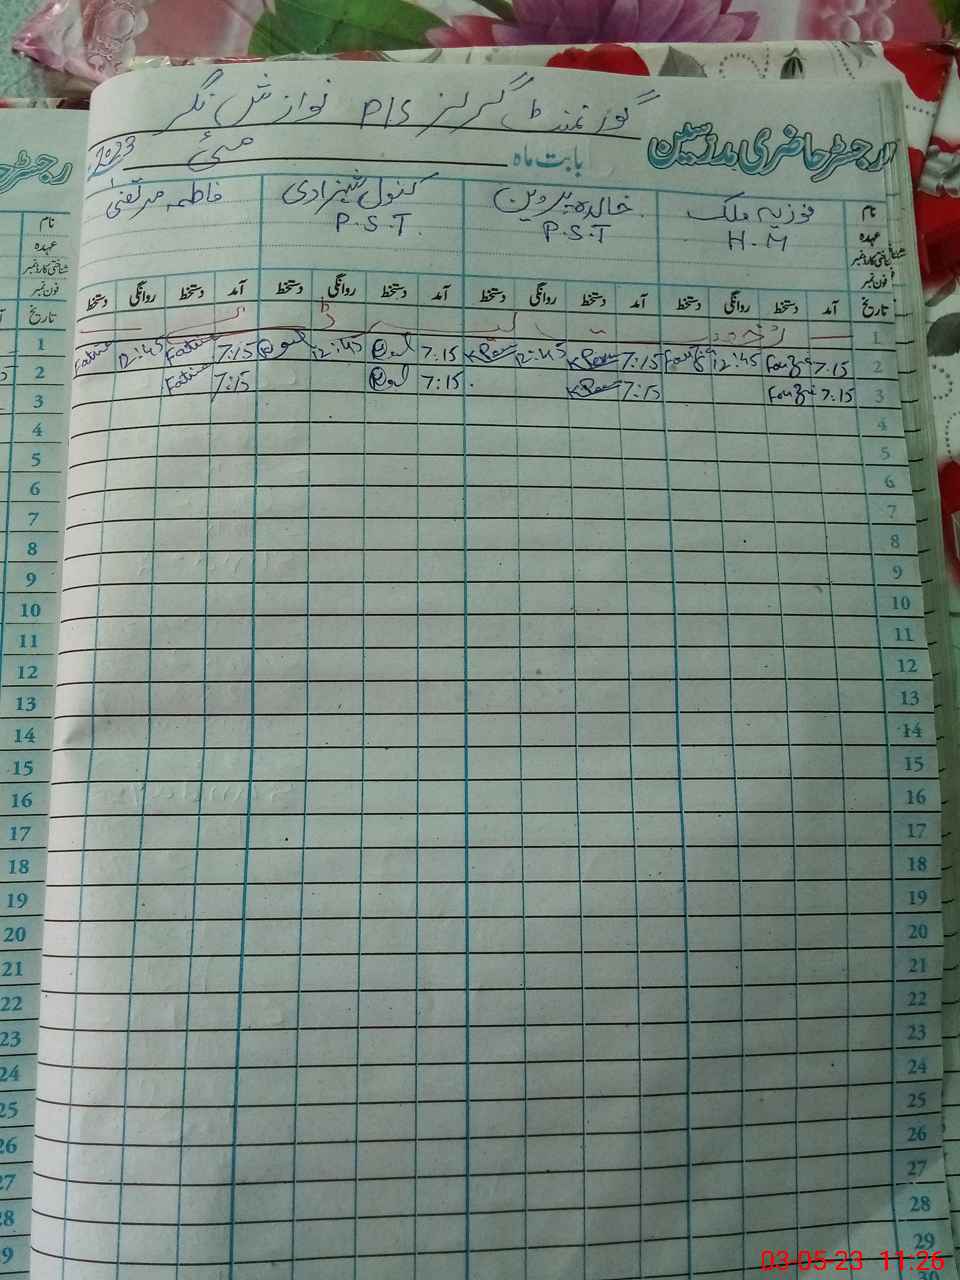 گورنمنٹ گرلز P/S نوازش نگر
رجسٹر حاضری مدرسین
بابت ماہ مئی 2023
نام فوزیہ ملک خالدہ پروین کنول شہزادی فاطمہ مرتضیٰ
عہدہ H.M P.S.T P.S.T.
شناختی کارڈ نمبر
فون نمبر
تاریخ آمد دستخط روانگی دستخط آمد دستخط روانگی دستخط آمد دستخط روانگی دستخط آمد دستخط روانگی دستخط
1
2 7:15 Fouzia 12:45 Fouzia 7:15 12:45 7:15 12:45 7:15 Fatima 12:45 Fatima 2
3 7:15 Fouzia 7:15 7:15 7:15 Fatima 3
4 4
5 5
6 6
7 7
8 8
9 9
10 10
11 11
12 12
13 13
14 14
15 15
16 16
17 17
18 18
19 19
20 20
21 21
22 22
23 23
24 24
25 25
26 26
27 27
28 28
29 29
03-05-23 11:26